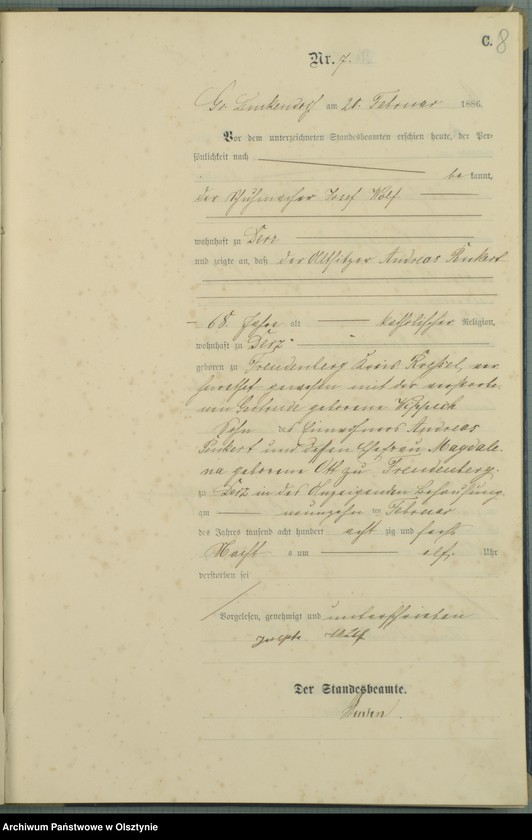 C. 8
Nr. 7.
am 20. Februar 1886.
Vor dem unterzeichneten Standesbeamten erschien heute, der Per-
sönlichkeit nach
be kannt,
der Schuhmacher Josef Wolf
wohnhaft zu Derz
und zeigte an, daß der Altsitzer Andreas
68. Jahre alt katholischer Religion,
wohnhaft zu Derz
geboren zu Freudenberg Kreis Roeßel, ver
heirathet gewesen mit der verstorbe
nen Gertrude geborene
Sohn des Einwohners Andreas
und dessen Ehefrau Magdale
na geborene Ott zu Freudenberg.
zu Derz in des Anzeigenden Behausung
am neunzehn ten Februar
des Jahres tausend acht hundert acht zig und sechs
Nacht s um elf Uhr
verstorben sei
Vorgelesen, genehmigt und unterschrieben
Der Standesbeamte.
Archiwum Państwowe w Olsztynie